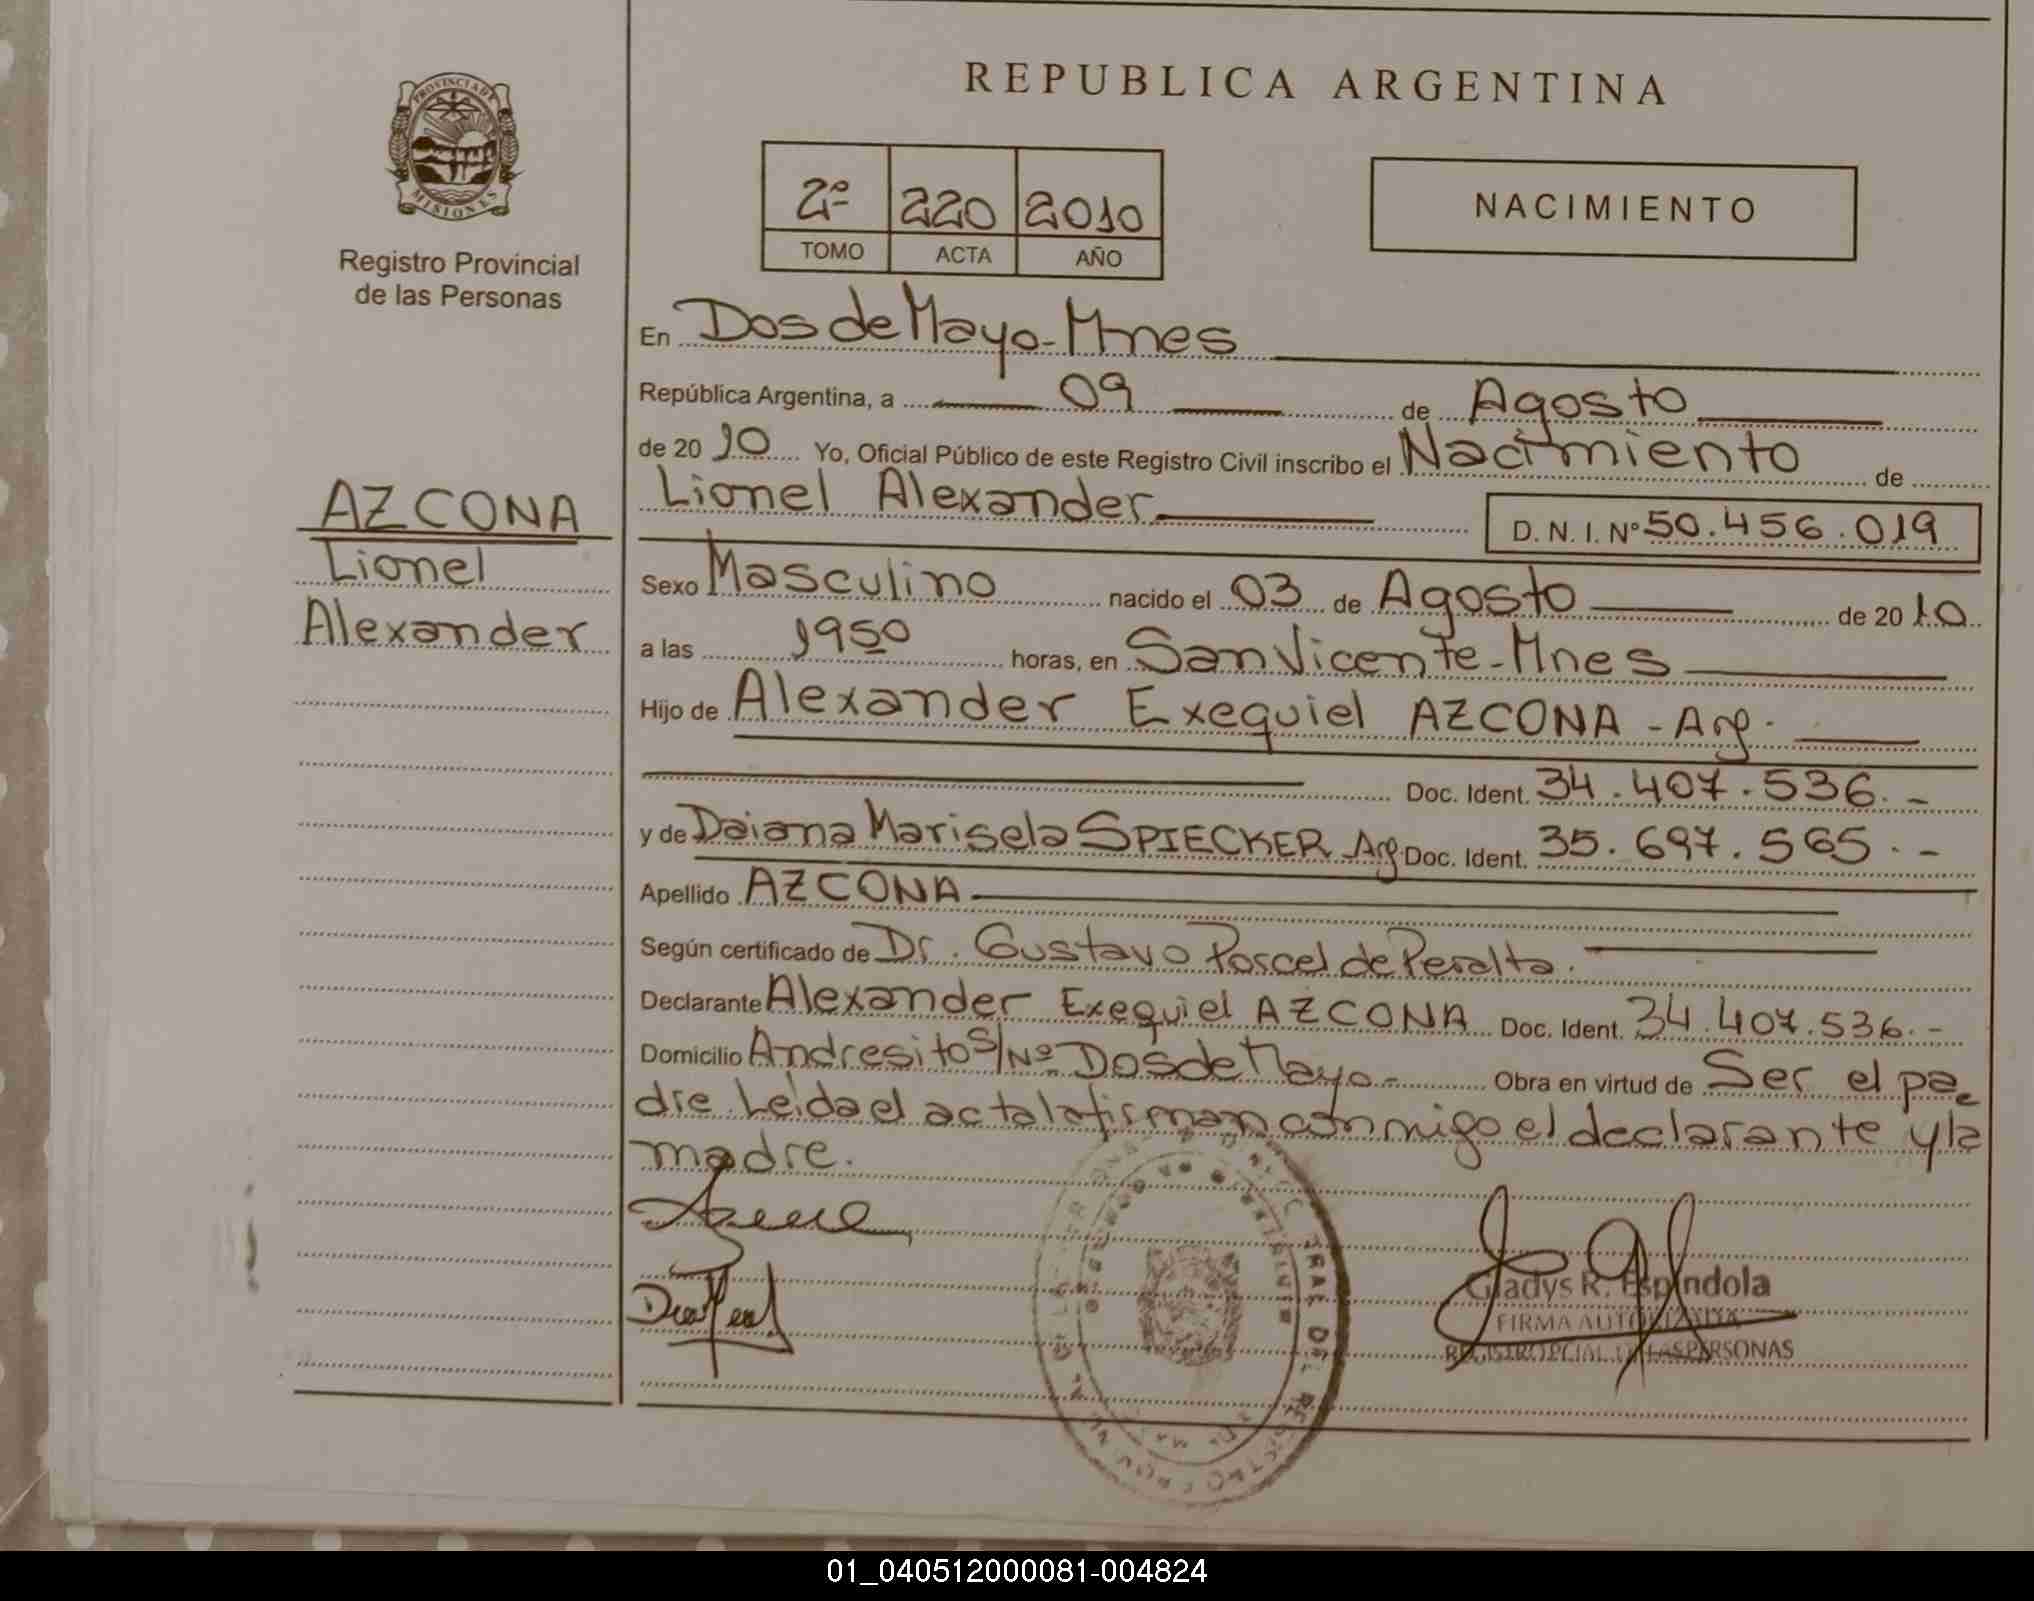 REPUBLICA ARGENTINA
PROVINCIA DE
MISIONES
Registro Provincial
de las Personas
2º 220 2010
TOMO ACTA AÑO
NACIMIENTO
En Dos de Mayo - Mnes
República Argentina, a 09 de Agosto
de 2010 Yo, Oficial Público de este Registro Civil inscribo el Nacimiento de
Lionel Alexander D. N. I. Nº 50.456.019
AZCONA
Lionel
Alexander
Sexo Masculino nacido el 03 de Agosto de 2010
a las 1950 horas, en San Vicente - Mnes
Hijo de Alexander Exequiel AZCONA - Arg.
Doc. Ident. 34.407.536.-
y de Daiana Marisela SPIECKER Arg. Doc. Ident. 35.697.565.-
Apellido AZCONA
Según certificado de Dr. Gustavo Porcel de Peralta.
Declarante Alexander Exequiel AZCONA Doc. Ident. 34.407.536.-
Domicilio Andresito S/Nº Dos de Mayo - Obra en virtud de Ser el pa
dre. Leída el acta la firman conmigo el declarante y la
madre.
Gladys R. Espindola
FIRMA AUTORIZADA
REGISTRO PCIAL. DE LAS PERSONAS
01_040512000081-004824